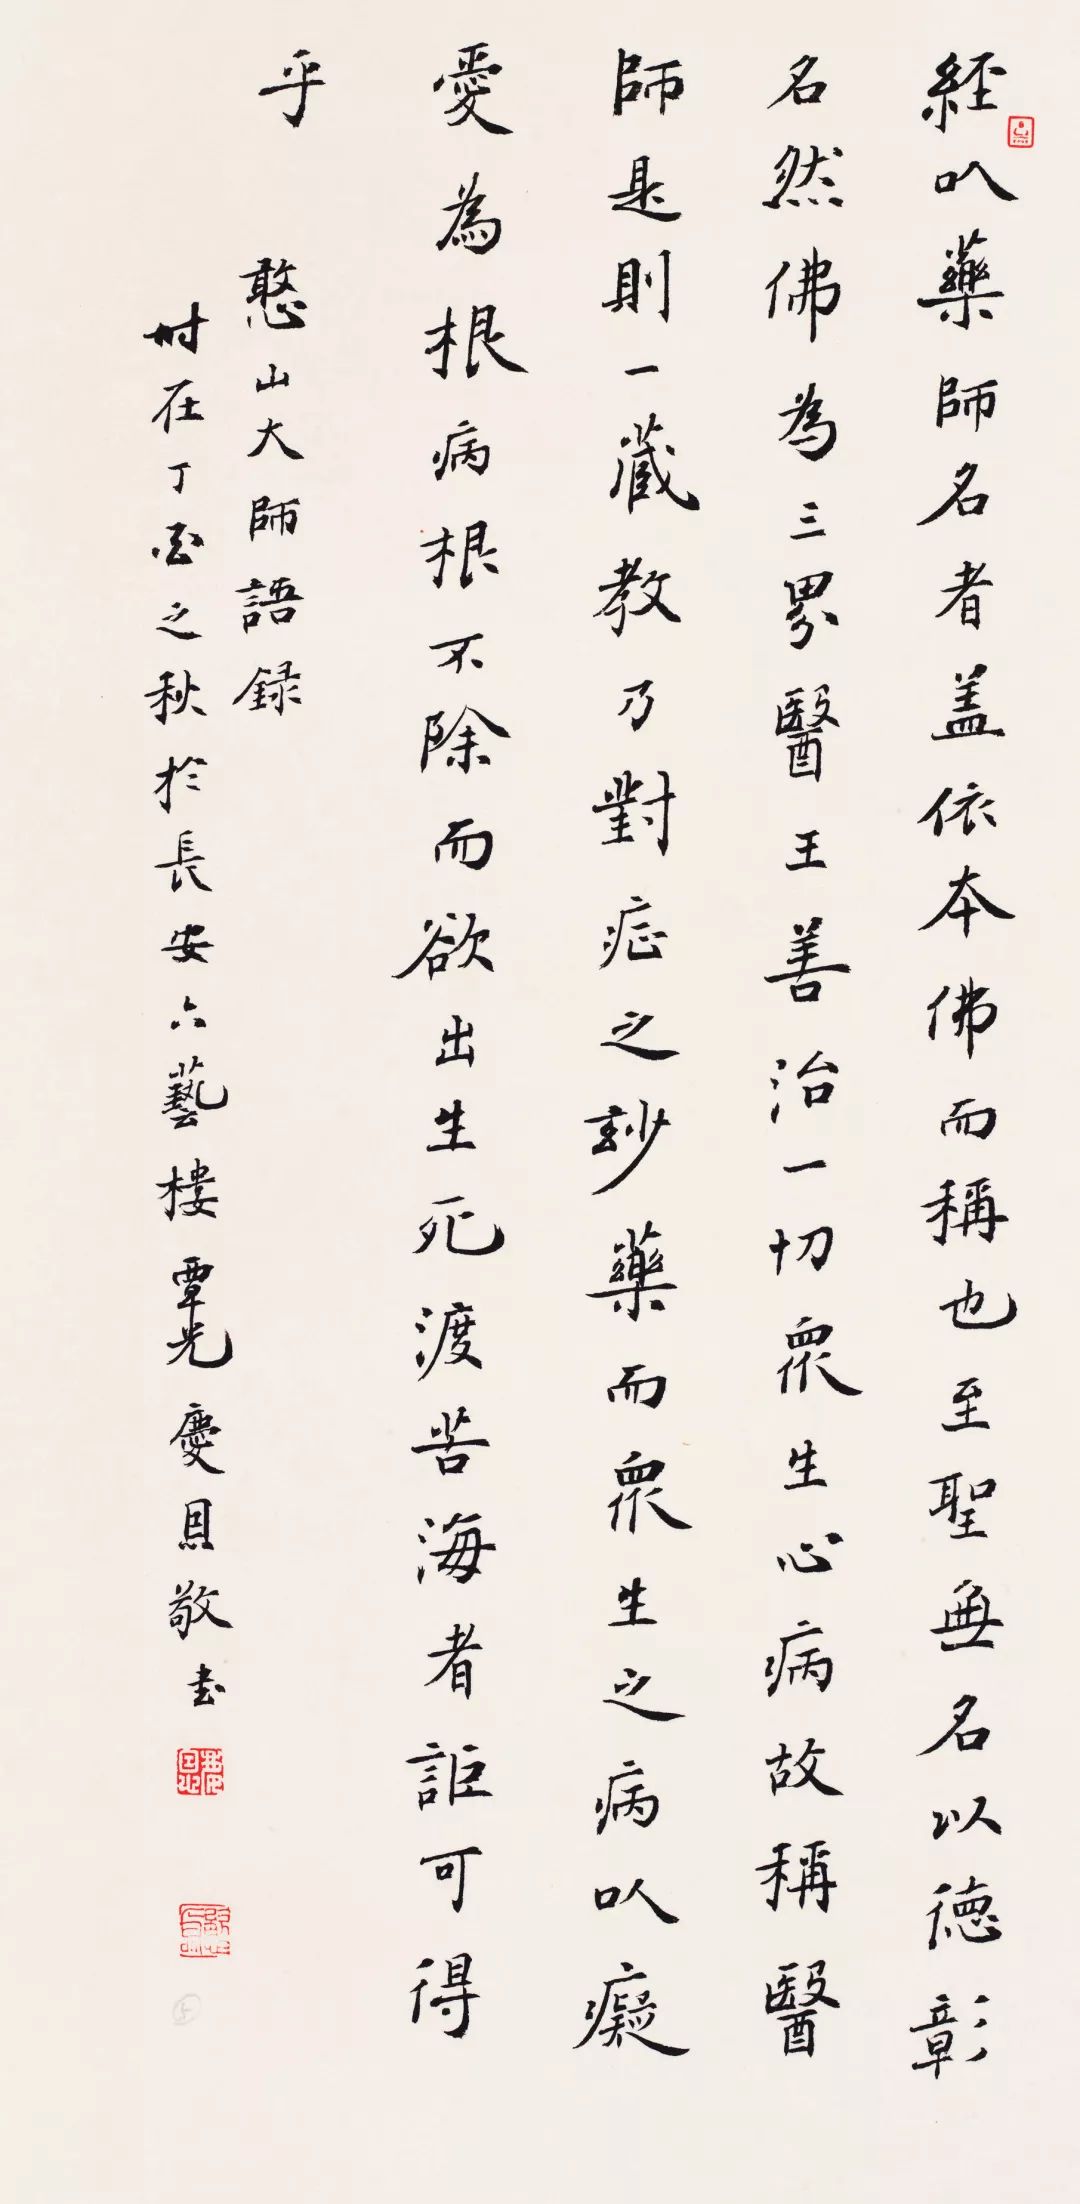 経以藥師名者盖依本佛而稱也至聖無名以德彰
名然佛為三界醫王善治一切眾生心病故稱醫
師是則一藏教乃對症之妙藥而眾生之病以癡
愛為根病根不除而欲出生死渡苦海者詎可得
乎
憨山大師語録
時在丁酉之秋於長安六藝樓覃光慶具敬书